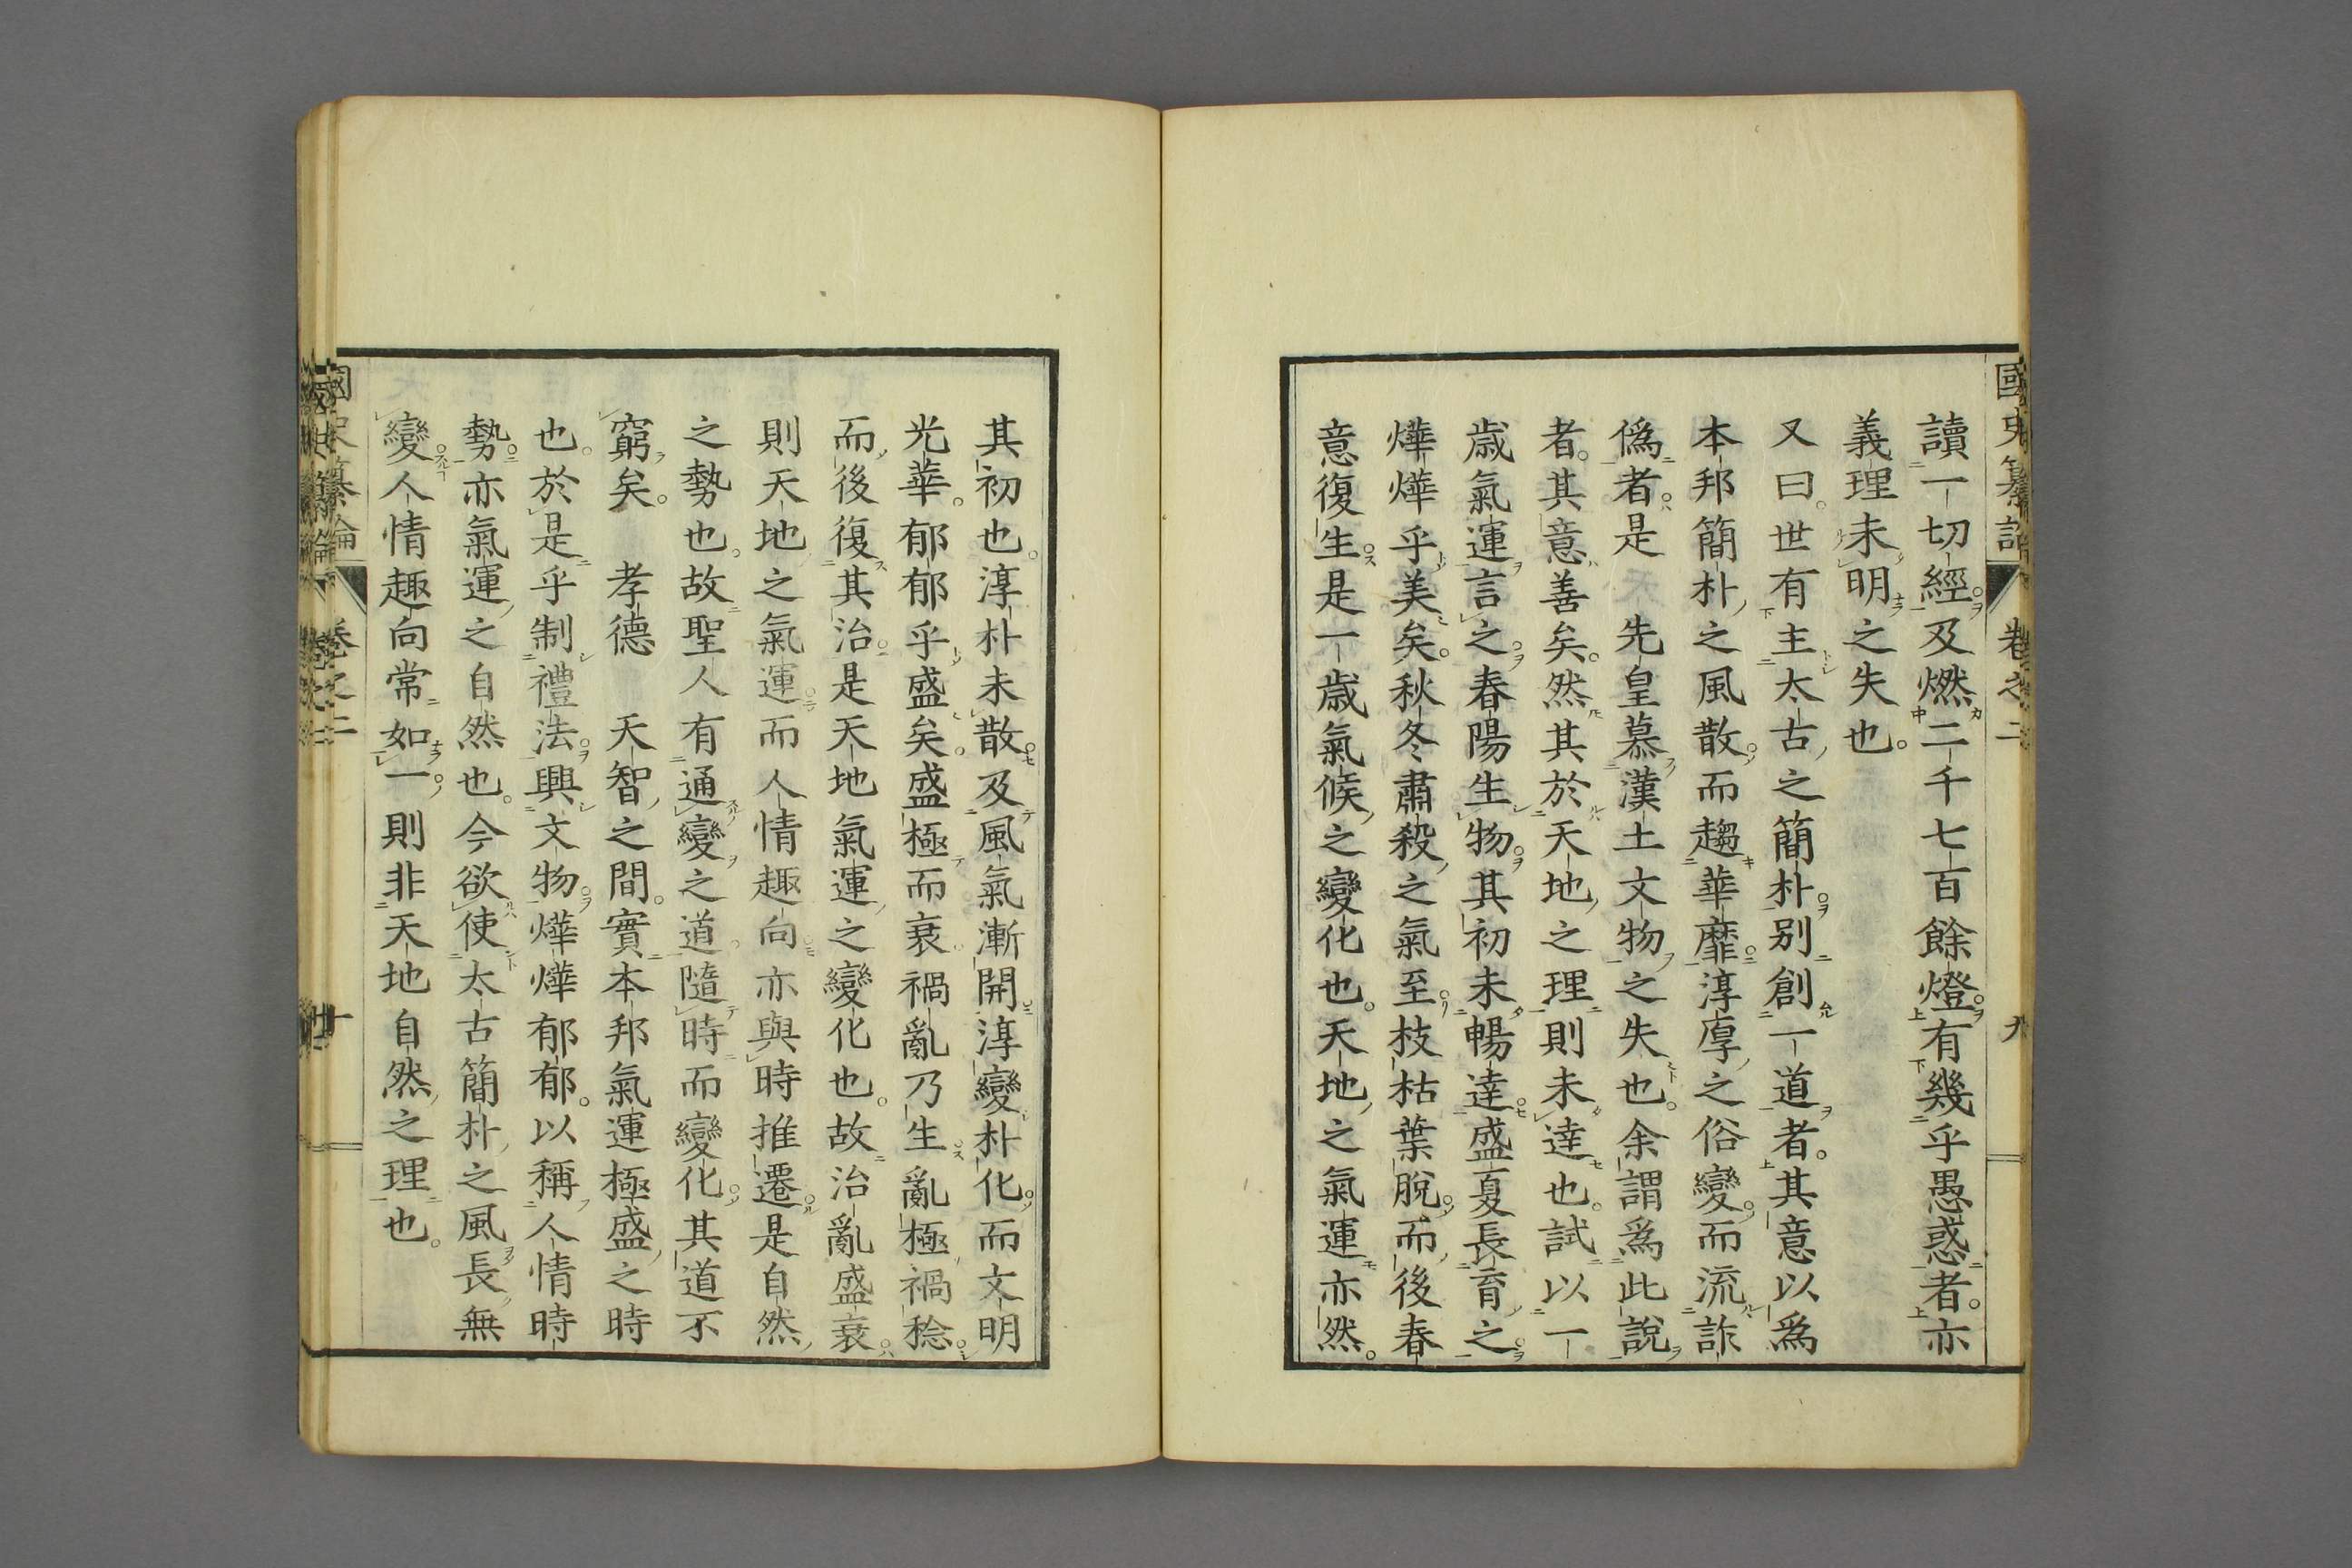 國史纂論 卷之二 九
讀一切經及燃二千七百餘燈有幾乎愚惑者亦
義理未明之失也
又曰世有主太古之簡朴別創一道者其意以爲
本邦簡朴之風散而趨華靡淳厚之俗變而流詐
僞者是 先皇慕漢土文物之失也余謂爲此說
者其意善矣然其於天地之理則未達也試以一
歲氣運言之春陽生物其初未暢達盛夏長育之
燁燁乎美矣秋冬肅殺之氣至枝枯葉脫而後春
意復生是一歲氣候之變化也天地之氣運亦然
其初也淳朴未散及風氣漸開淳變朴化而文明
光華郁郁乎盛矣盛極而衰禍亂乃生亂極禍稔
而後復其治是天地氣運之變化也故治亂盛衰
則天地之氣運而人情趣向亦與時推遷是自然
之勢也故聖人有通變之道隨時而變化其道不
窮矣 孝德 天智之間實本邦氣運極盛之時
也於是乎制禮法興文物燁燁郁郁以稱人情時
勢亦氣運之自然也今欲使太古簡朴之風長無
變人情趣向常如一則非天地自然之理也
國史纂論 卷之二 十